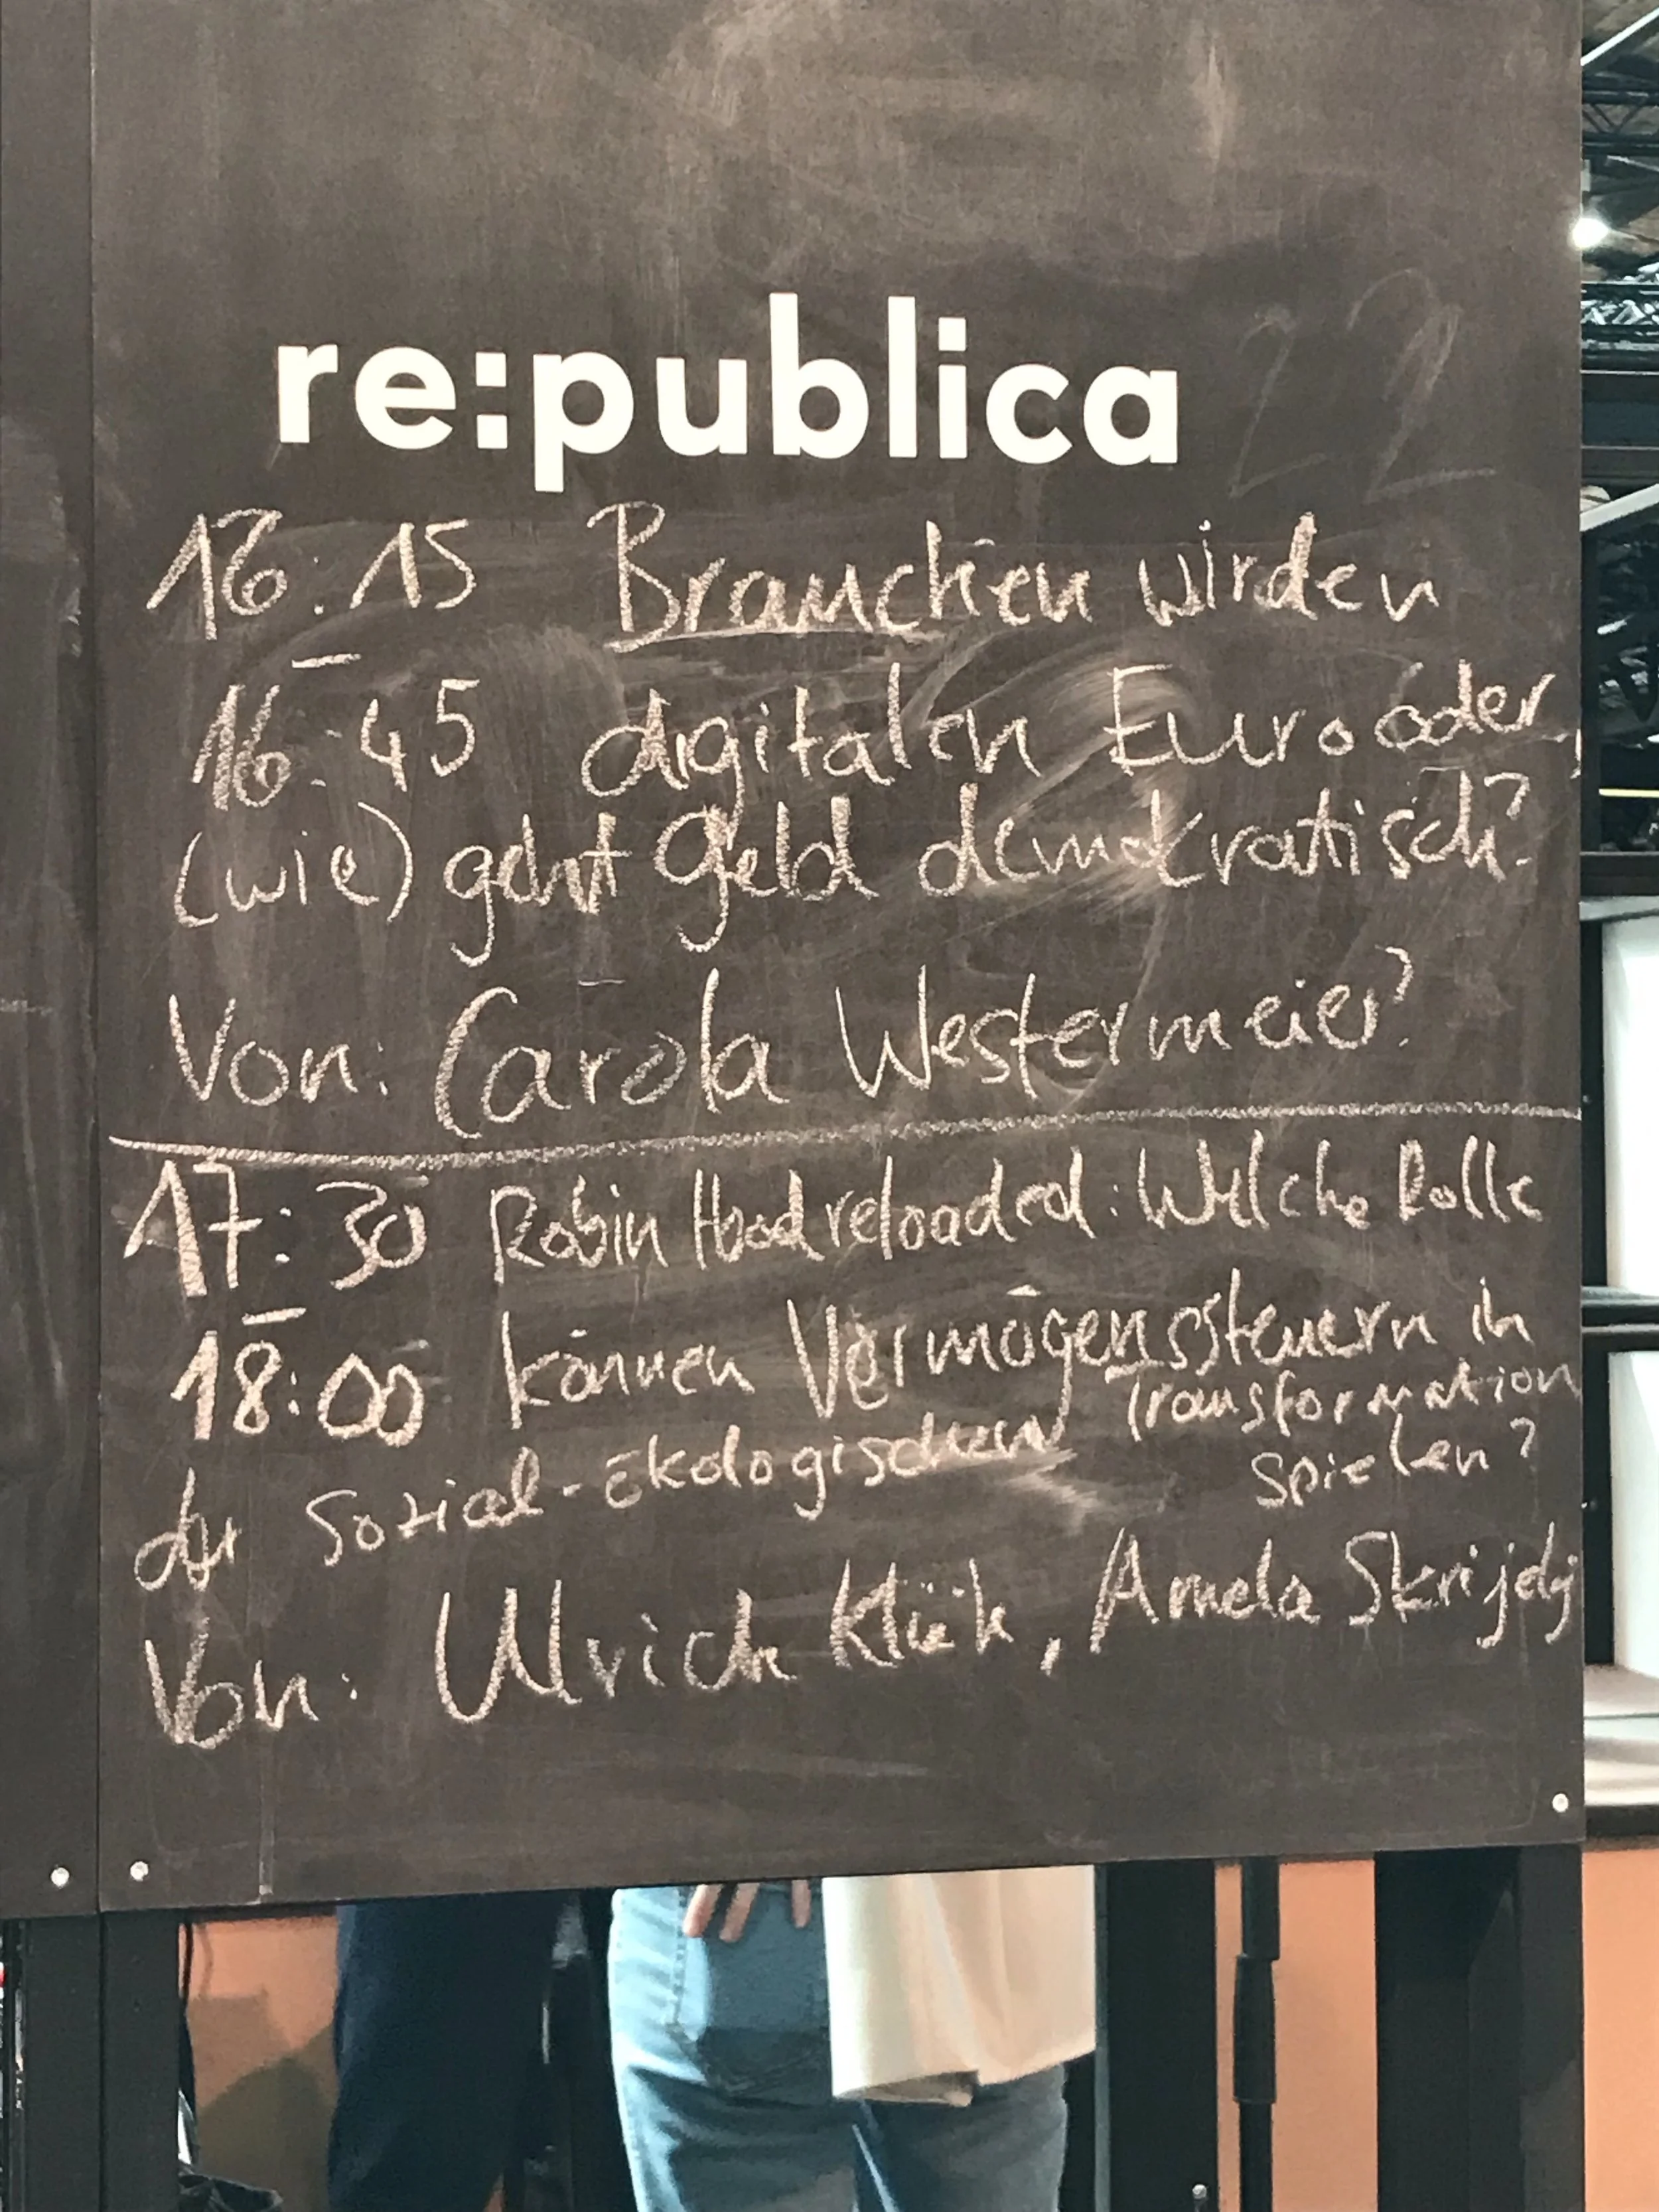 re:publica 22
16:15 Brauchen wir den
–
16:45 digitalen Euro oder,
(wie) geht Geld demokratisch?
Von: Carola Westermeier?
17:30 Robin Hood reloaded: Welche Rolle
–
18:00 können Vermögens(s)teuern in
der Sozial-ökologischen Transformation
spielen?
Von: Ulrich Klüh, Amela Skrijelj